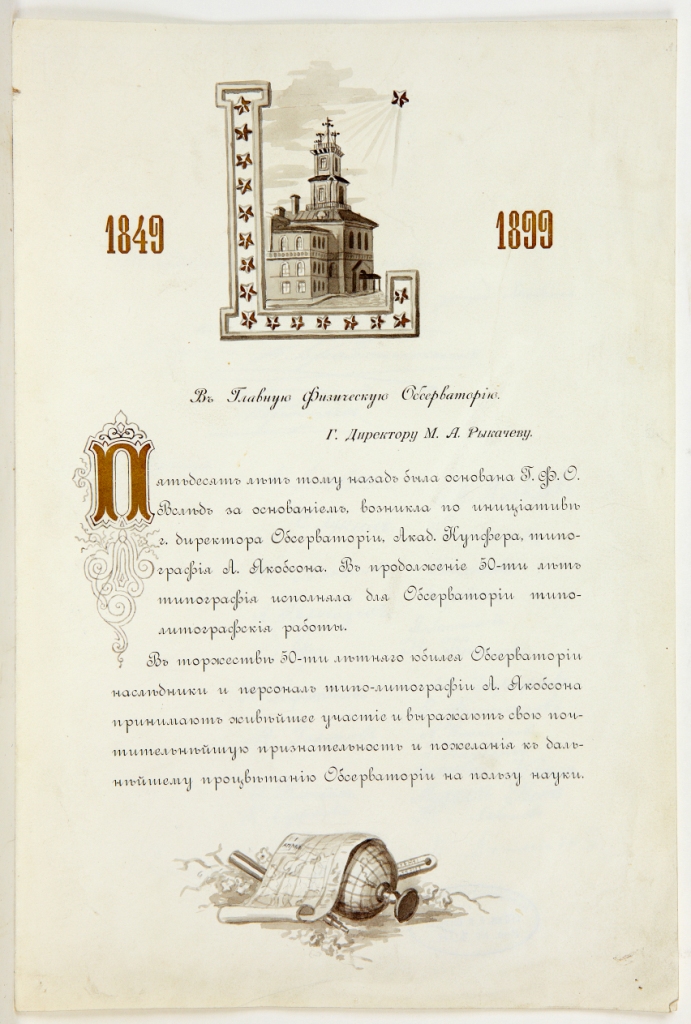 L
1849 1899
Въ Главную Физическую Обсерваторію.
Г. Директору М. А. Рыкачеву.
Пятьдесятъ лѣтъ тому назадъ была основана Г. Ф. О.
Вслѣдъ за основаніемъ, возникла по иниціативѣ
г. директора Обсерваторіи, Акад. Купфера, типо-
графія А. Якобсона. Въ продолженіе 50-ти лѣтъ
типографія исполняла для Обсерваторіи типо-
литографскія работы.
Въ торжествѣ 50-ти лѣтняго юбилея Обсерваторіи
наслѣдники и персоналъ типо-литографіи А. Якобсона
принимаютъ живѣйшее участіе и выражаютъ свою поч-
тительнѣйшую признательность и пожеланія къ даль-
нѣйшему процвѣтанію Обсерваторіи на пользу науки.